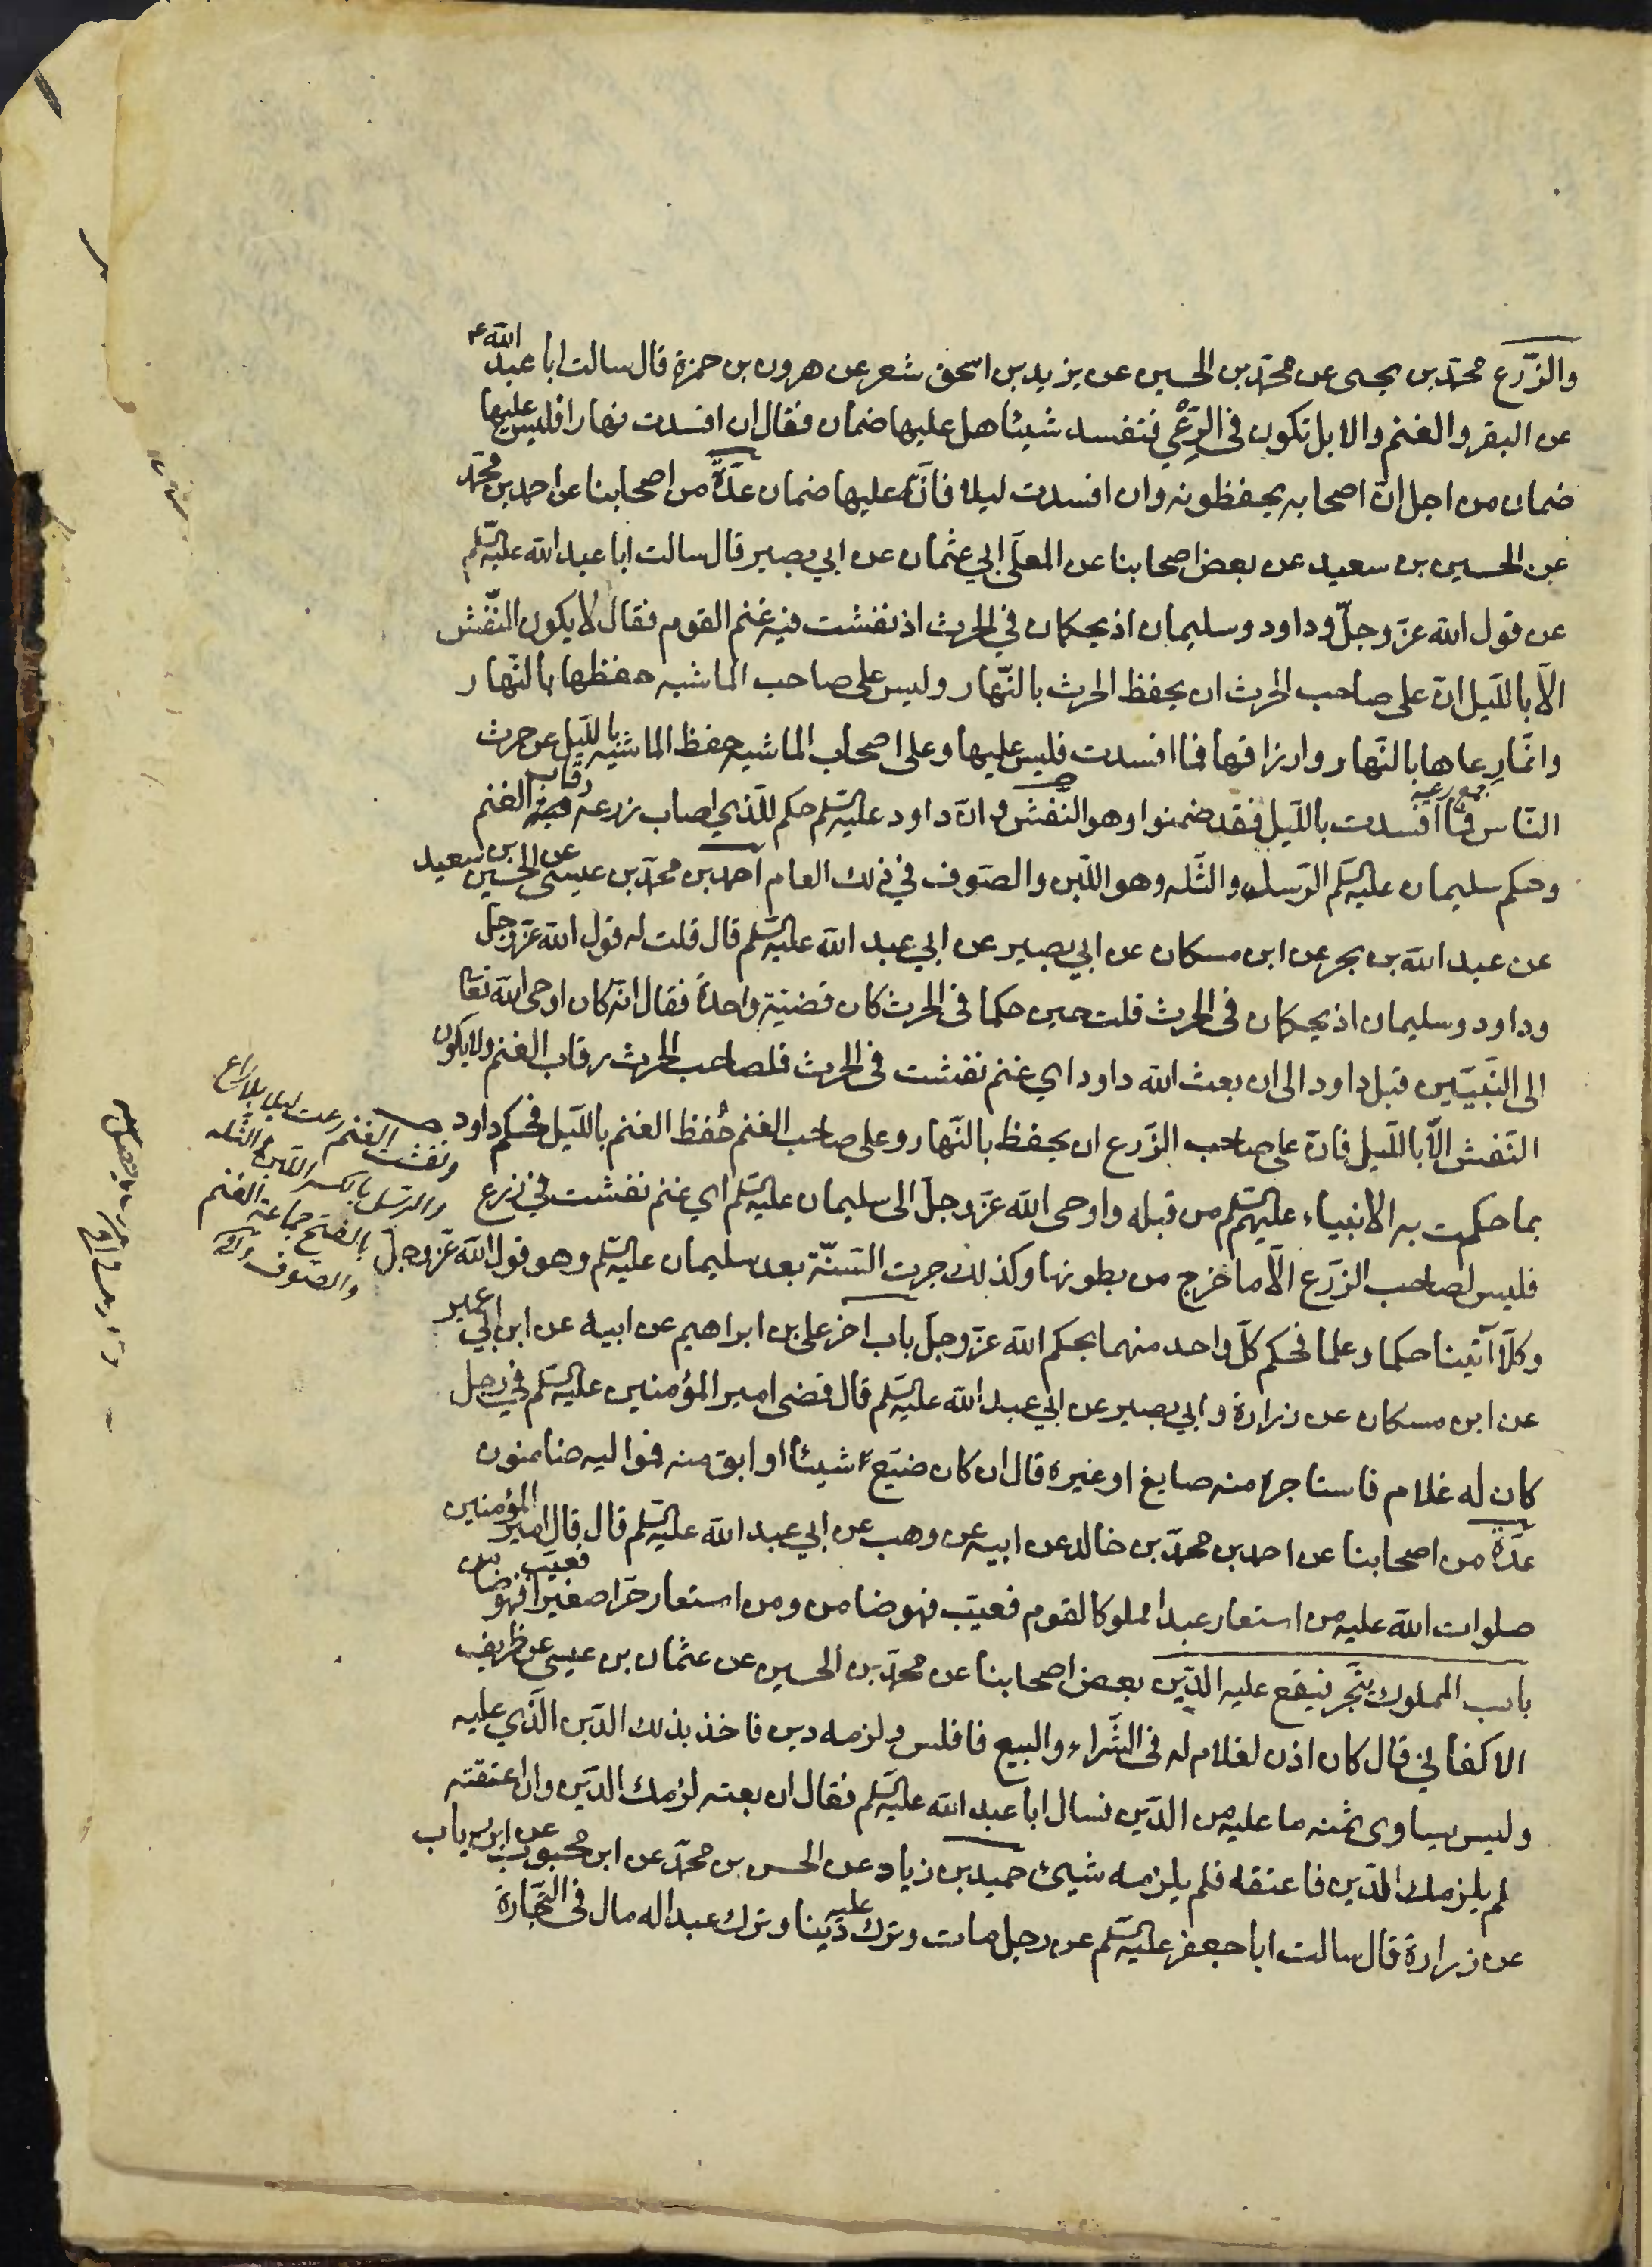 والزّرع محمّد بن يحيى عن محمّد بن الحسين عن يزيد بن اسحق شعر عن هرون بن حمزة قال سالت ابا عبد الله ع
عن البقر والغنم والابل تكون في الرّعْي فتفسد شيئا هل عليها ضمان فقال ان افسدت نهارا فليس عليها
ضمان من اجل انّ اصحابه يحفظونه وان افسدت ليلا فانّه عليها ضمان عدّة من اصحابنا عن احمد بن محمّد
عن الحسين بن سعيد عن بعض اصحابنا عن المعلّى ابي عثمان عن ابي بصير قال سالت ابا عبد الله عليه السّلم
عن قول الله عزّ وجلّ وداود وسليمان اذ يحكمان في الحرث اذ نفشت فيه غنم القوم فقال لا يكون النّفش
الّا باللّيل انّ على صاحب الحرث ان يحفظ الحرث بالنّهار وليس على صاحب الماشيه حفظها بالنّهار
وانّما رعاها بالنّهار وارزاقها فما افسدت فليس عليها وعلى اصحاب الماشيه حفظ الماشيه باللّيل عن حرث
النّاس فما افسدت باللّيل فقد ضمنوا وهو النّفش وانّ داود عليه السّلم حكم للّذي اصاب زرعه رقاب الغنم
وحكم سليمان عليه السّلم الرّسل والثّله وهو اللّبن والصّوف في ذلك العام احمد بن محمّد بن عيسى عن الحسين بن سعيد
عن عبد الله بن بحر عن ابن مسكان عن ابي بصير عن ابي عبد الله عليه السّلم قال قلت له قول الله عزّ وجلّ
وداود وسليمان اذ يحكمان في الحرث قلت حين حكما في الحرث كان قضيّة واحدة فقال انّه كان اوحى الله تعا
الى النّبيّين قبل داود الى ان بعث الله داود اي غنم نفشت في الحرث فلصاحب الحرث رقاب الغنم ولا يكون
النّفش الّا باللّيل فانّ على صاحب الزّرع ان يحفظ بالنّهار وعلى صاحب الغنم حُفظ الغنم باللّيل فحكم داود
بما حكمت به الانبياء عليهم السّلم من قبله واوحى الله عزّ وجلّ الى سليمان عليه السّلم اي غنم نفشت في زرع
فليس لصاحب الزّرع الّا ما خرج من بطونها وكذلك جرت السّنّة بعد سليمان عليه السّلم وهو قول الله عزّ وجلّ
وكلّا آتينا حكما وعلما فحكم كلّ واحد منهما بحكم الله عزّ وجلّ باب اخر على بن ابراهيم عن ابيه عن ابن ابي عمير
عن ابن مسكان عن زرارة وابي بصير عن ابي عبد الله عليه السّلم قال قضى امير المؤمنين عليه السّلم في رجل
كان له غلام فاستاجره منه صايغ او غيره قال ان كان ضيّع شيئا او ابق منه فمواليه ضامنون
عدّة من اصحابنا عن احمد بن محمّد بن خالد عن ابيه عن وهب عن ابي عبد الله عليه السّلم قال قال امير المؤمنين
صلوات الله عليه من استعار عبدا مملوكا لقوم فعيّب فهو ضامن ومن استعار حرّا صغيرا فعيّب فهو ضامن
باب المملوك يتّجر فيقع عليه الدّين بعض اصحابنا عن محمّد بن الحسين عن عثمان بن عيسى عن ظريف
الاكفاني قال كان اذن لغلام له في الشّراء والبيع فافلس ولزمه دين فاخذ بذلك الدّين الّذي عليه
وليس يساوى ثمنه ما عليه من الدّين فسال ابا عبد الله عليه السّلم فقال ان بعته لزمك الدّين وان اعتقته
لم يلزمك الدّين فاعتقه فلم يلزمه شيئ حميد بن زياد عن الحسن بن محمّد عن ابن محبوب عن ابن رياب
عن زرارة قال سالت ابا جعفر عليه السّلم عن رجل مات وترك عليه دَينا وترك عبدا له مال في التّجارة
ونفشت الغنم رعت ليلا بلا راع
والرّسل بالكسر اللّبن والثّله
بالفتح جماعة الغنم
والصّوف